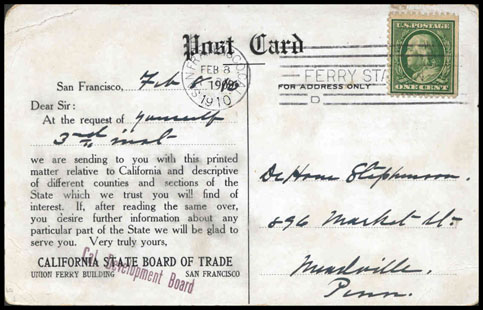 Post Card
U.S. POSTAGE
ONE CENT
SAN FRANCISCO, CAL.
FEB 8
1910
FERRY STA.
D
FOR ADDRESS ONLY
San Francisco, Feb 8
Dear Sir:
At the request of yourself
3rd inst
we are sending to you with this printed
matter relative to California and descriptive
of different counties and sections of the
State which we trust you will find of
interest. If, after reading the same over,
you desire further information about any
particular part of the State we will be glad to
serve you. Very truly yours,
CALIFORNIA STATE BOARD OF TRADE
UNION FERRY BUILDING SAN FRANCISCO
Cal. Development Board
Stephenson.
896 Market St.
Meadville,
Penn.